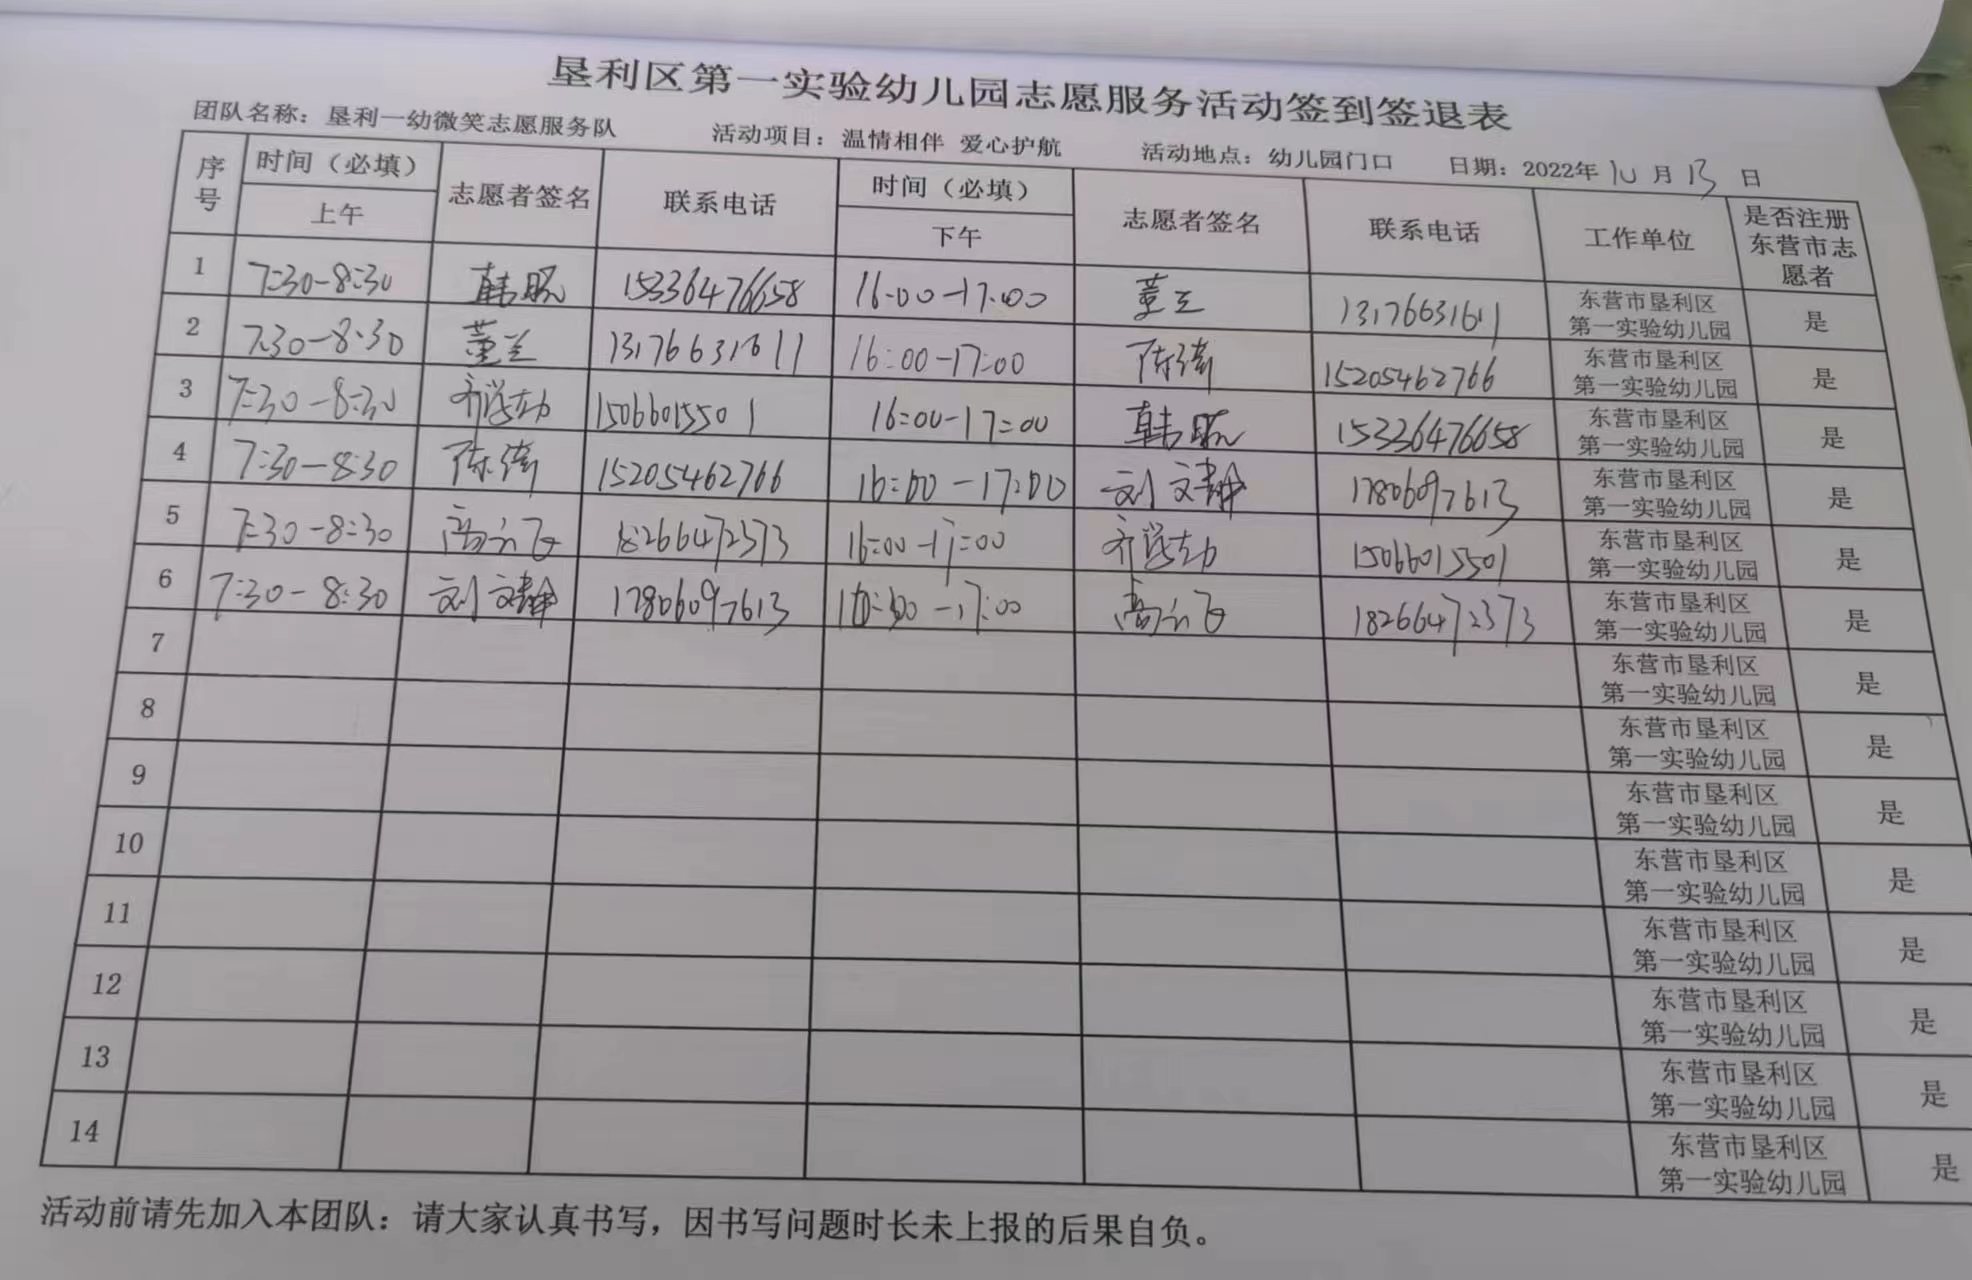 垦利区第一实验幼儿园志愿服务活动签到签退表
团队名称：垦利一幼微笑志愿服务队 活动项目：温情相伴 爱心护航 活动地点：幼儿园门口 日期：2022年10月13日
序号 时间（必填） 上午 志愿者签名 联系电话 时间（必填） 下午 志愿者签名 联系电话 工作单位 是否注册东营市志愿者
1 7:30-8:30 韩 15336476658 16:00-17:00 董兰 13176631611 东营市垦利区第一实验幼儿园 是
2 7:30-8:30 董兰 13176631611 16:00-17:00 陈 15205462766 东营市垦利区第一实验幼儿园 是
3 7:30-8:30 齐 15066015501 16:00-17:00 韩 15336476658 东营市垦利区第一实验幼儿园 是
4 7:30-8:30 陈 15205462766 16:00-17:00 刘文静 17806097613 东营市垦利区第一实验幼儿园 是
5 7:30-8:30 高 18266472373 16:00-17:00 齐 15066015501 东营市垦利区第一实验幼儿园 是
6 7:30-8:30 刘文静 17806097613 16:00-17:00 高 18266472373 东营市垦利区第一实验幼儿园 是
7 东营市垦利区第一实验幼儿园 是
8 东营市垦利区第一实验幼儿园 是
9 东营市垦利区第一实验幼儿园 是
10 东营市垦利区第一实验幼儿园 是
11 东营市垦利区第一实验幼儿园 是
12 东营市垦利区第一实验幼儿园 是
13 东营市垦利区第一实验幼儿园 是
14 东营市垦利区第一实验幼儿园 是
活动前请先加入本团队：请大家认真书写，因书写问题时长未上报的后果自负。